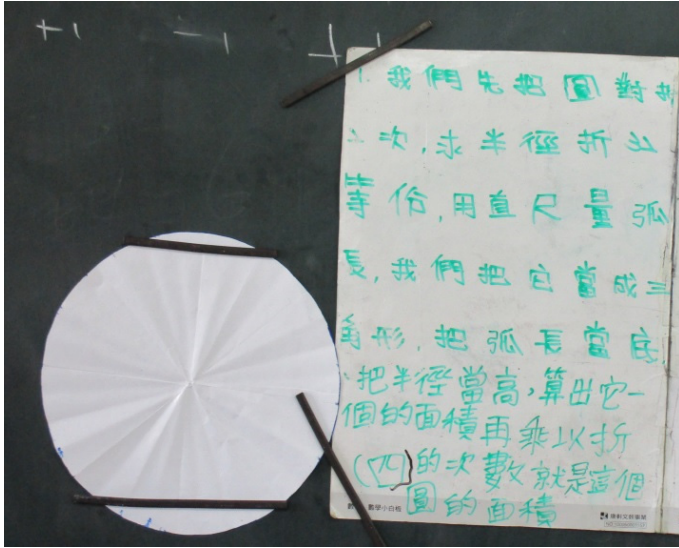 +1 -1 +1
1. 我們先把圓對折
2次,求半徑折出
等份,用直尺量弧
長,我們把它當成三
角形,把弧長當底
,把半徑當高,算出它一
個的面積再乘以折
(四)的次數就是這個
圓的面積
數學小白板